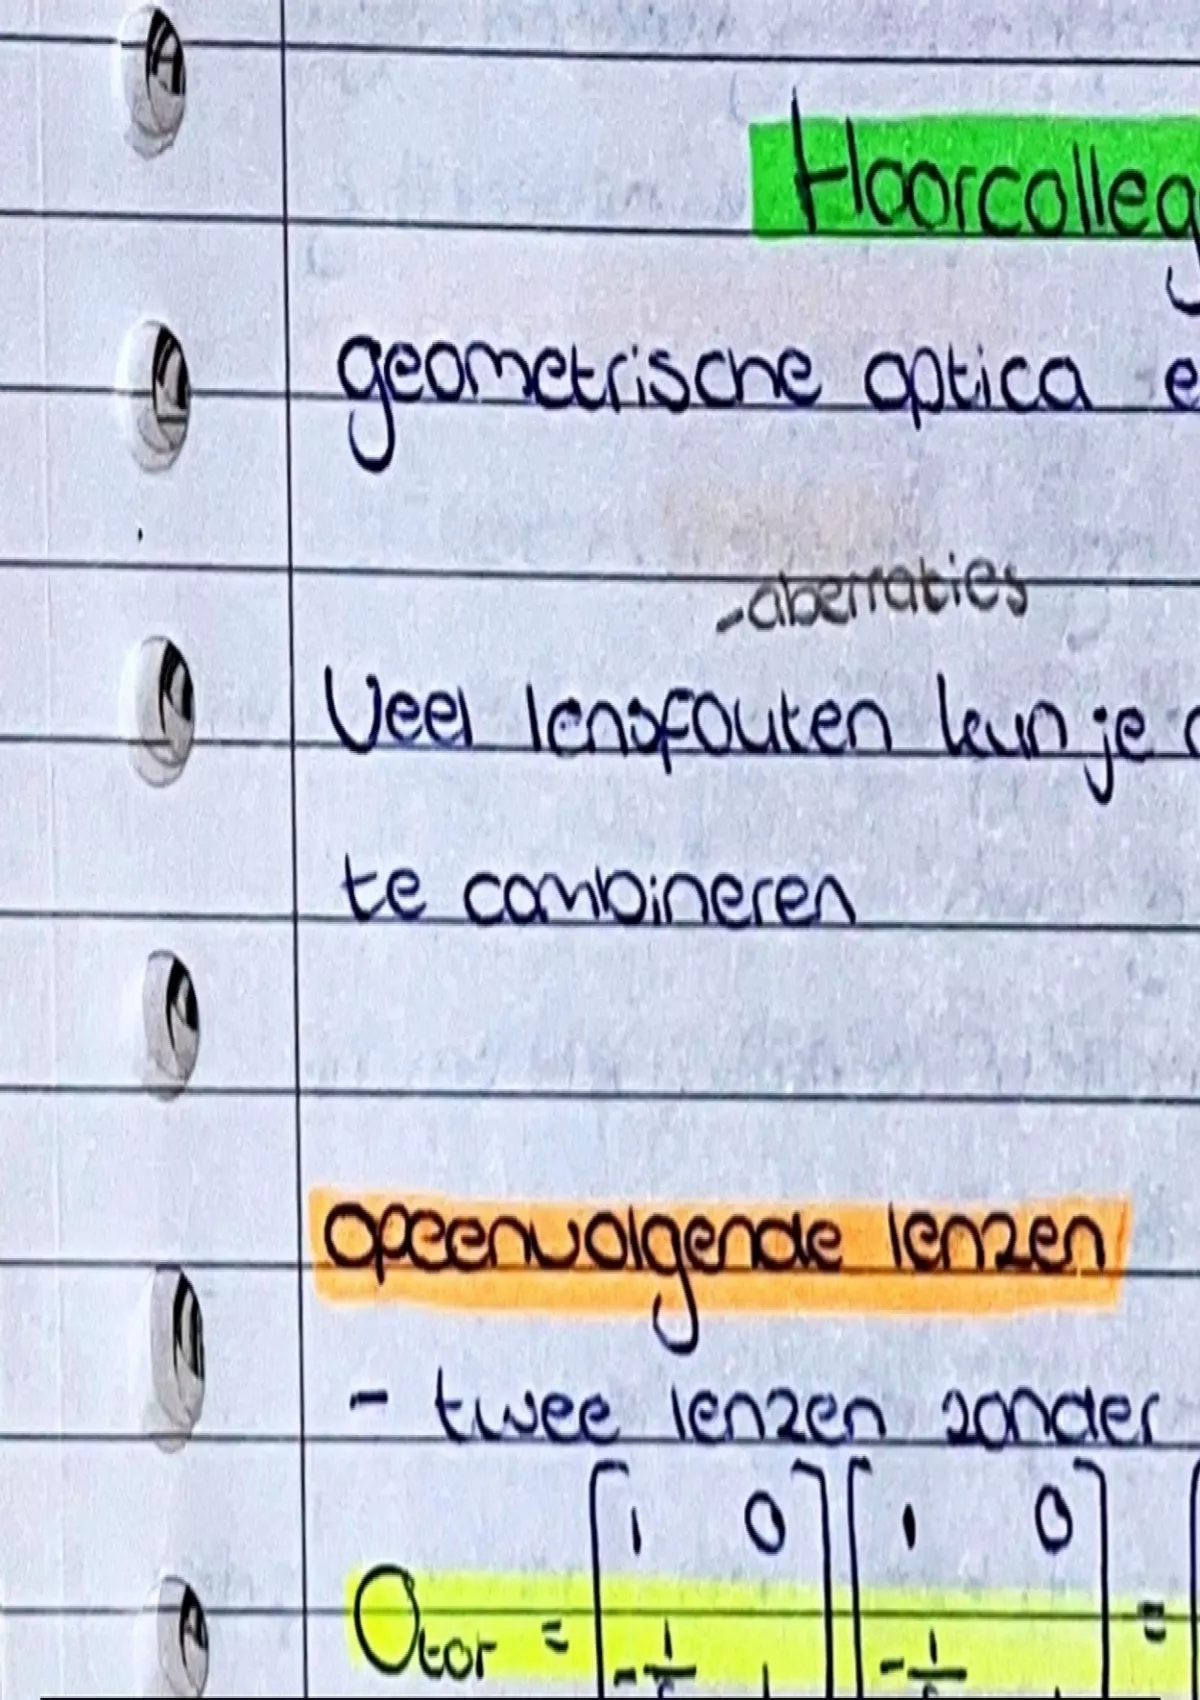 Hoorcolleg
geometrische optica e
-aberraties
Veel lensfouten kun je
te combineren
opeenvolgende lenzen
- twee lenzen zonder
[1 0] [1 0]
Otot = [-1/ 1] [-1/ 1] = [